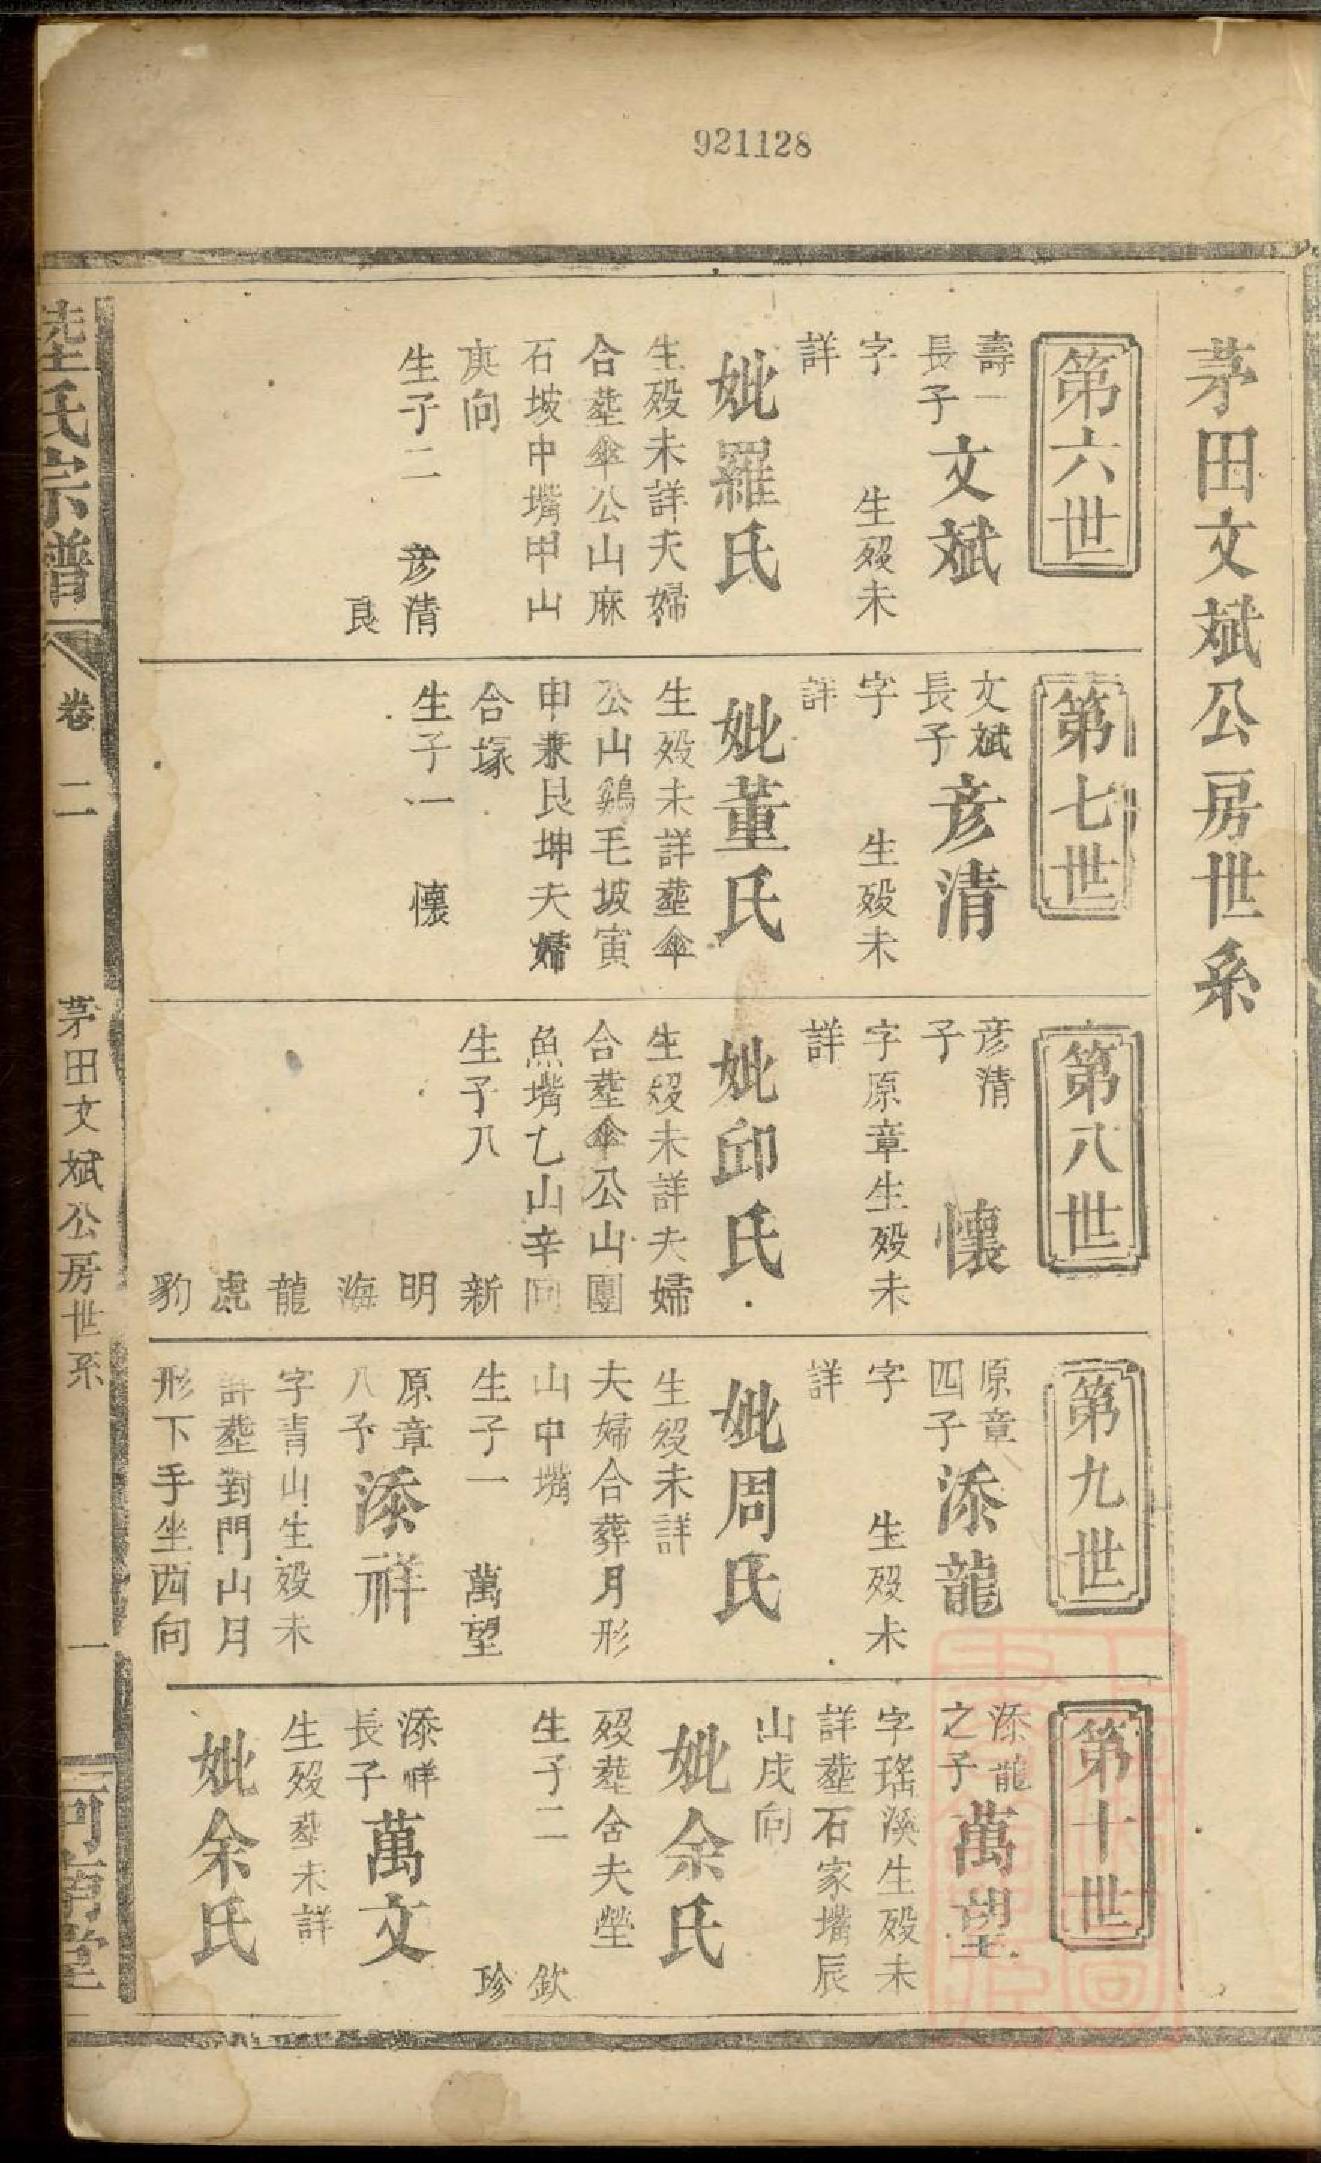 921128
茅田文斌公房世系
第六世
壽一
長子
文斌
字 生殁未
詳
妣羅氏
生殁未詳夫婦
合塟傘公山麻
石坡中嘴申山
庚向
生子二 彦清
良
第七世
文斌
長子
彦清
字 生殁未
詳
妣董氏
生殁未詳塟傘
公山鷄毛坡寅
申兼艮坤夫婦
合塚
生子一 懷
第八世
彦清
子
懷
字原章生殁未
詳
妣邱氏
生殁未詳夫婦
合塟傘公山團
魚嘴乙山辛向
生子八 新
明
海
龍
虎
豹
第九世
原章
四子
添龍
字 生殁未
詳
妣周氏
生殁未詳
夫婦合葬月形
山中嘴
生子一 萬望
原章
八子
添祥
字青山生殁未
詳塟對門山月
形下手坐西向
第十世
添龍
之子
萬望
字瑤溪生殁未
詳塟石家嘴辰
山戌向
妣余氏
殁塟合夫塋
生子二 欽
珍
添祥
長子
萬文
生殁塟未詳
妣余氏
陸氏宗譜
卷二
茅田文斌公房世系
一
河南堂